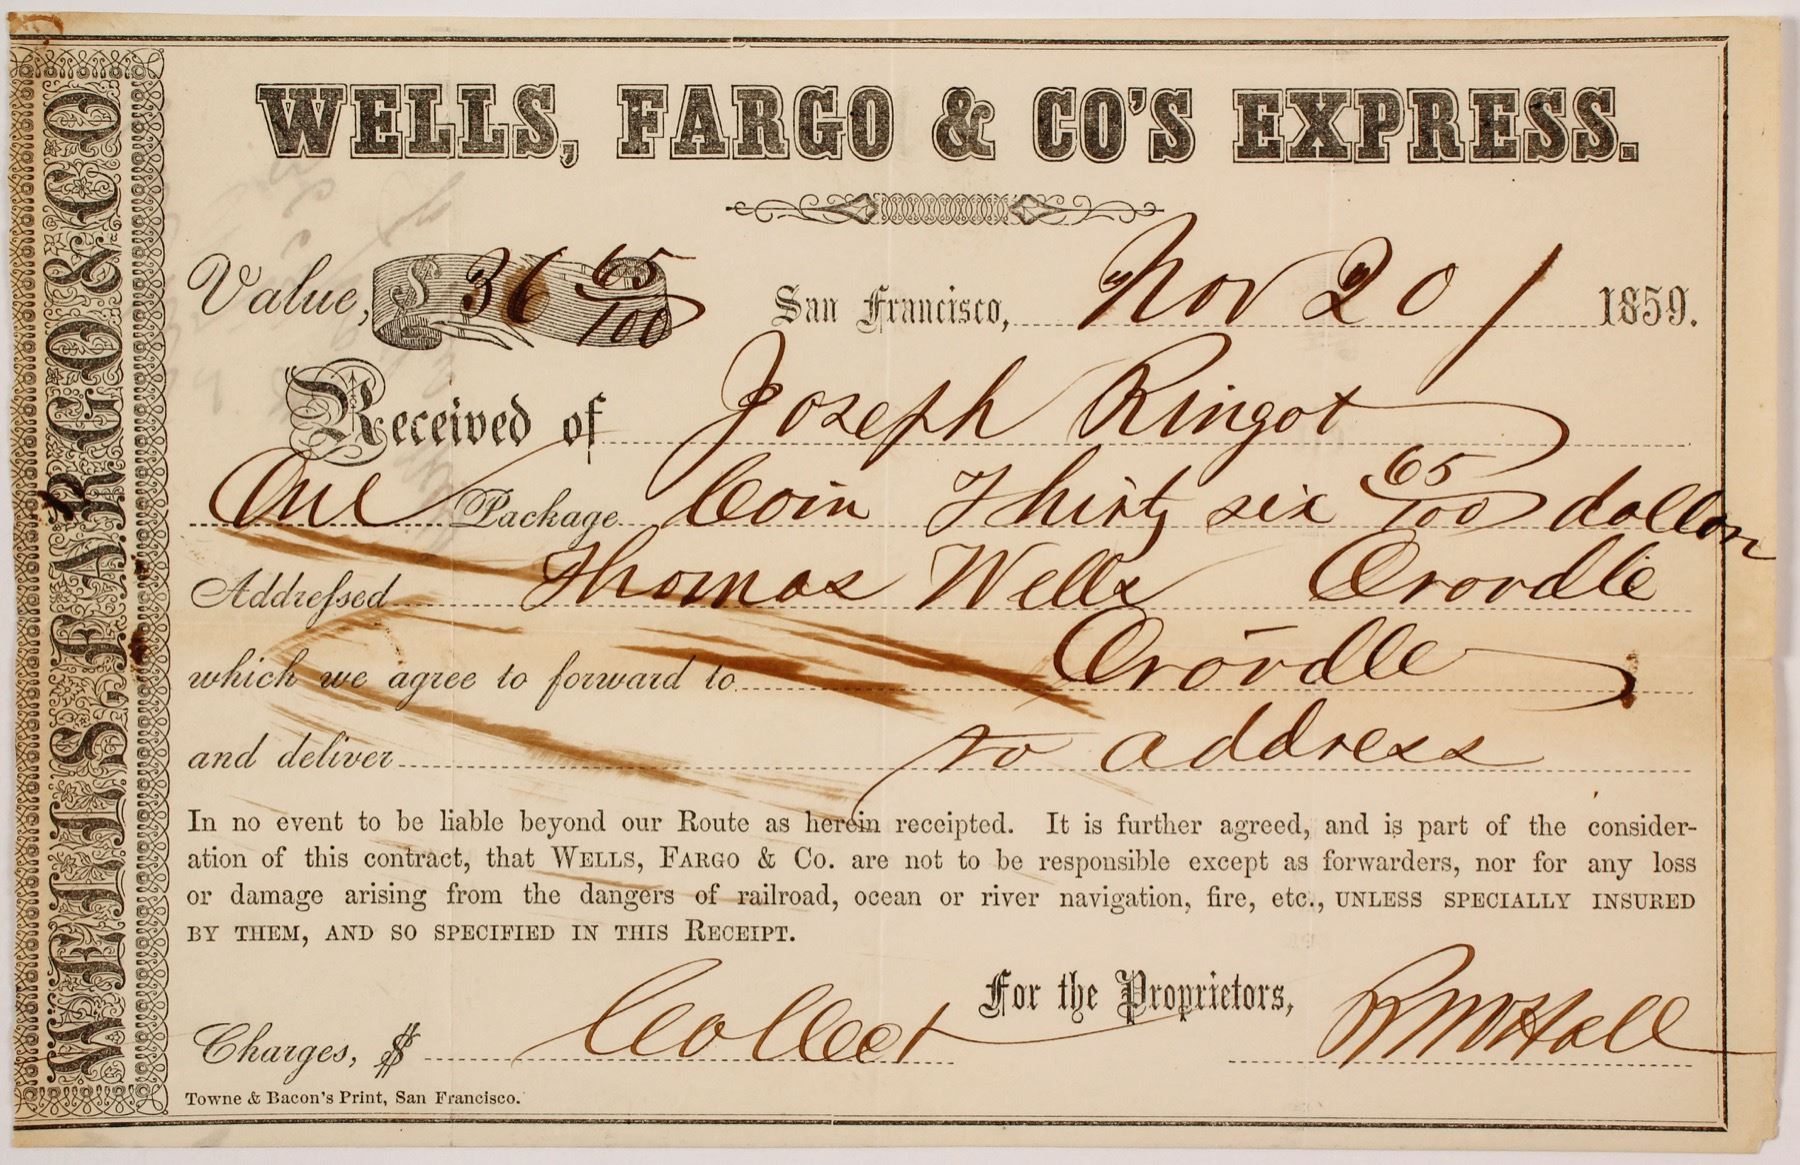 WELLS, FARGO & CO'S EXPRESS.
WELLS, FARGO & CO
Value, $ 36 65/100 San Francisco, Nov 20 / 1859.
Received of Joseph Ringot
One Package Coin Thirty six 65/100 dollars
Addressed Thomas Wells
which we agree to forward to
and deliver to address
In no event to be liable beyond our Route as herein receipted. It is further agreed, and is part of the consider-
ation of this contract, that WELLS, FARGO & CO. are not to be responsible except as forwarders, nor for any loss
or damage arising from the dangers of railroad, ocean or river navigation, fire, etc., UNLESS SPECIALLY INSURED
BY THEM, AND SO SPECIFIED IN THIS RECEIPT.
For the Proprietors,
Charges, $ Collect
Towne & Bacon's Print, San Francisco.